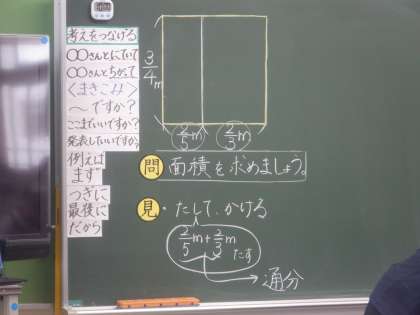 考えをつなげる
○○さんとにていて
○○さんとちがって
〈まきこみ〉
～ですか?
ここまでいいですか?
発表していいですか?
例えば
まず
つぎに
最後に
だから
3/4 m
2/5 m 2/3 m
問 面積を求めましょう。
見・たして、かける
2/5 m + 2/3 m
たす
→ 通分